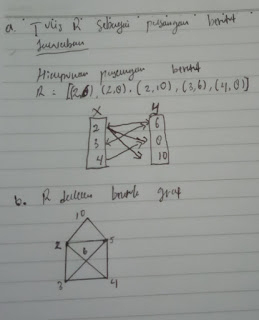 a. Tulis R sebagai pasangan berurut
Jawaban
Himpunan pasangan berurut
R = [(2,6), (2,8), (2,10), (3,6), (4,8)]
x y
2 6
3 8
4 10
b. R dalam bentuk graf
10
2 6 5
3 4